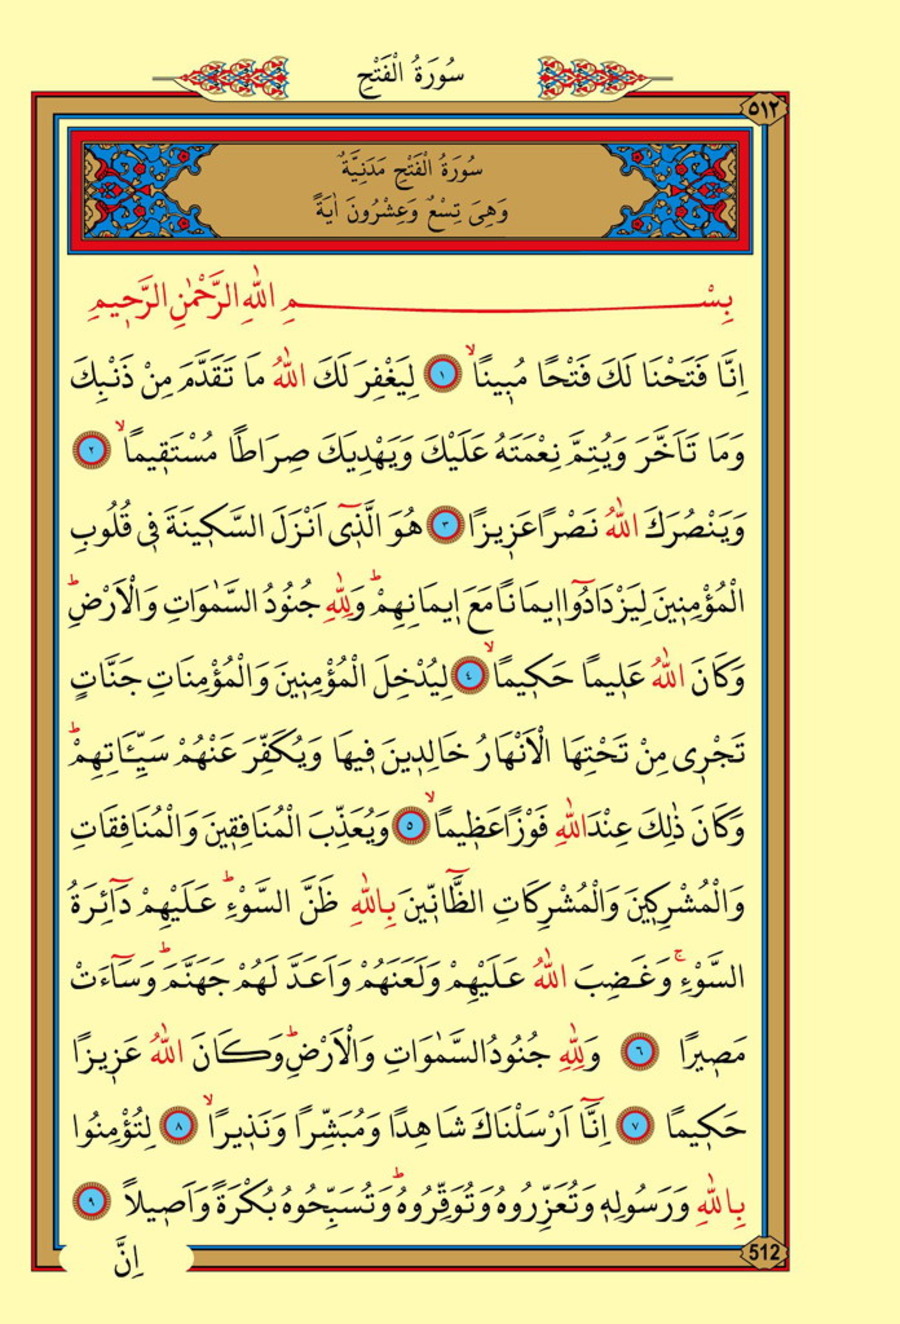 سُورَةُ الْفَتْحِ
٥١٢
سُورَةُ الْفَتْحِ مَدَنِيَّةٌ
وَهِيَ تِسْعٌ وَعِشْرُونَ اٰيَةً
بِسْمِ اللّٰهِ الرَّحْمٰنِ الرَّح۪يمِ
اِنَّا فَتَحْنَا لَكَ فَتْحًا مُب۪ينًاۙ ﴿١﴾ لِيَغْفِرَ لَكَ اللّٰهُ مَا تَقَدَّمَ مِنْ ذَنْبِكَ
وَمَا تَاَخَّرَ وَيُتِمَّ نِعْمَتَهُ عَلَيْكَ وَيَهْدِيَكَ صِرَاطًا مُسْتَق۪يمًاۙ ﴿٢﴾
وَيَنْصُرَكَ اللّٰهُ نَصْرًا عَز۪يزًا ﴿٣﴾ هُوَ الَّذ۪ٓي اَنْزَلَ السَّك۪ينَةَ ف۪ي قُلُوبِ
الْمُؤْمِن۪ينَ لِيَزْدَادُٓوا ا۪يمَانًا مَعَ ا۪يمَانِهِمْۜ وَلِلّٰهِ جُنُودُ السَّمٰوَاتِ وَالْاَرْضِۜ
وَكَانَ اللّٰهُ عَل۪يمًا حَك۪يمًاۙ ﴿٤﴾ لِيُدْخِلَ الْمُؤْمِن۪ينَ وَالْمُؤْمِنَاتِ جَنَّاتٍ
تَجْر۪ي مِنْ تَحْتِهَا الْاَنْهَارُ خَالِد۪ينَ ف۪يهَا وَيُكَفِّرَ عَنْهُمْ سَيِّـَٔاتِهِمْۜ
وَكَانَ ذٰلِكَ عِنْدَ اللّٰهِ فَوْزًا عَظ۪يمًاۙ ﴿٥﴾ وَيُعَذِّبَ الْمُنَافِق۪ينَ وَالْمُنَافِقَاتِ
وَالْمُشْرِك۪ينَ وَالْمُشْرِكَاتِ الظَّٓانّ۪ينَ بِاللّٰهِ ظَنَّ السَّوْءِۜ عَلَيْهِمْ دَٓائِرَةُ
السَّوْءِۚ وَغَضِبَ اللّٰهُ عَلَيْهِمْ وَلَعَنَهُمْ وَاَعَدَّ لَهُمْ جَهَنَّمَۜ وَسَٓاءَتْ
مَص۪يرًا ﴿٦﴾ وَلِلّٰهِ جُنُودُ السَّمٰوَاتِ وَالْاَرْضِۜ وَكَانَ اللّٰهُ عَز۪يزًا
حَك۪يمًا ﴿٧﴾ اِنَّٓا اَرْسَلْنَاكَ شَاهِدًا وَمُبَشِّرًا وَنَذ۪يرًاۙ ﴿٨﴾ لِتُؤْمِنُوا
بِاللّٰهِ وَرَسُولِه۪ وَتُعَزِّرُوهُ وَتُوَقِّرُوهُۜ وَتُسَبِّحُوهُ بُكْرَةً وَاَص۪يلًا ﴿٩﴾
512
اِنَّ